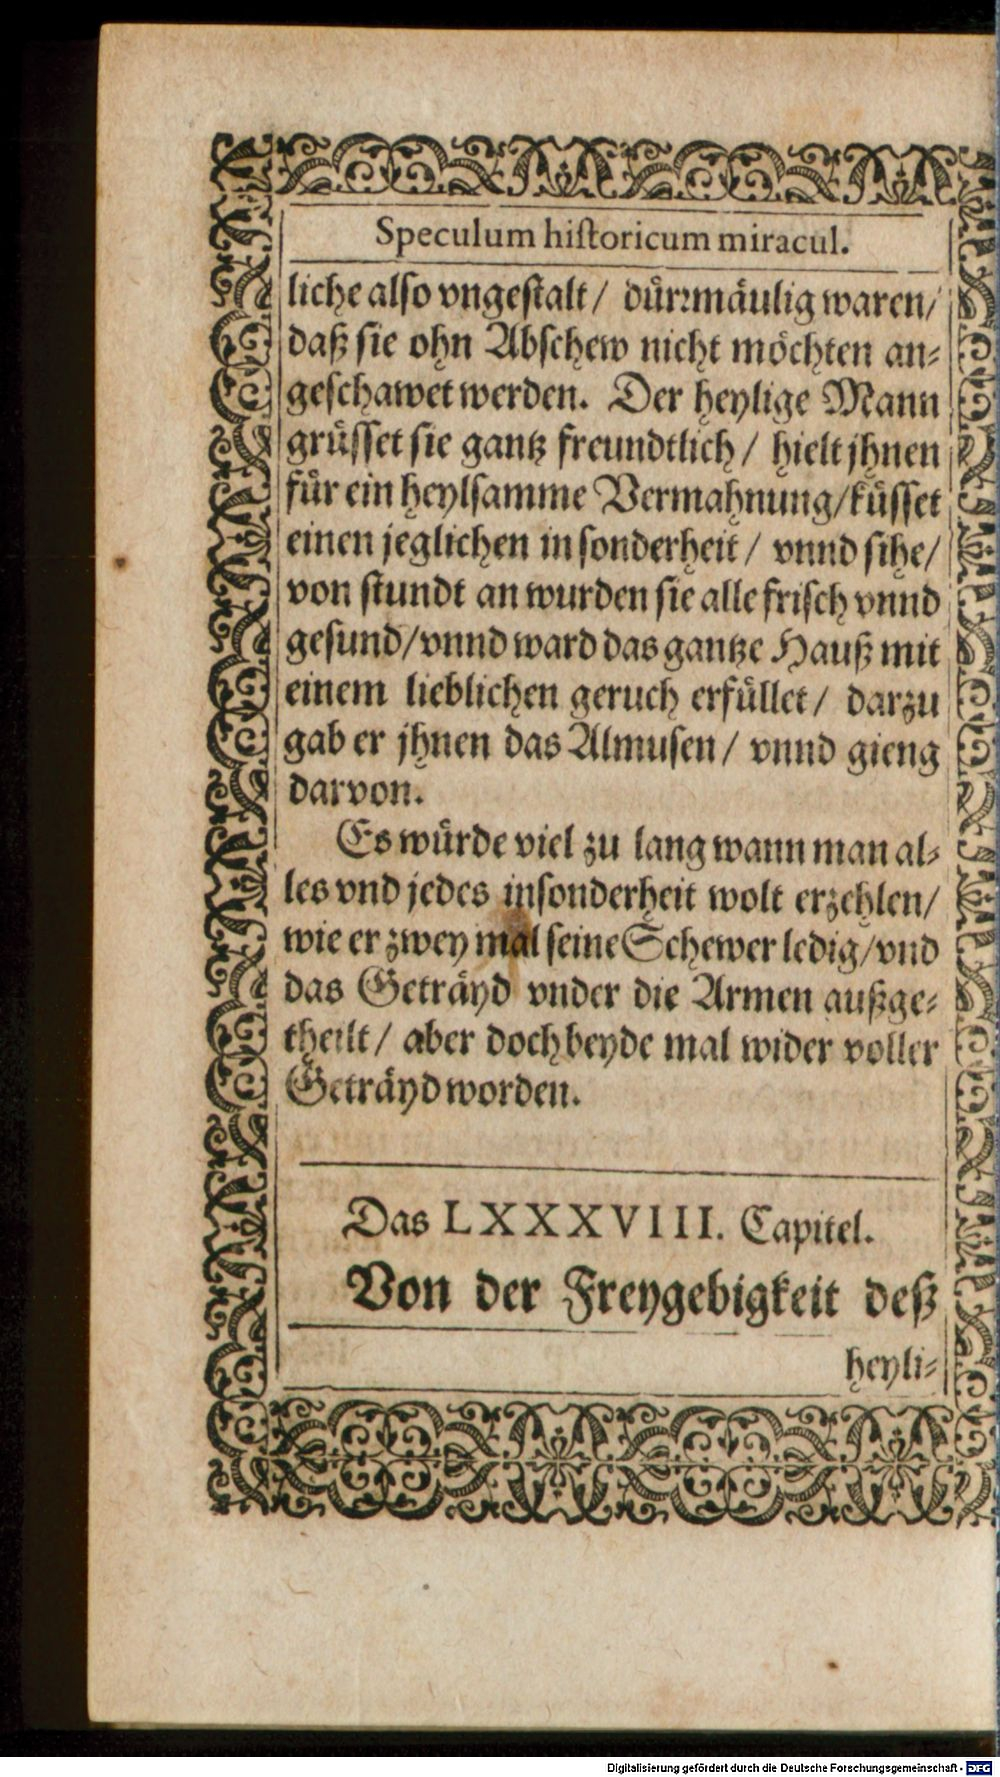 Speculum hiſtoricum miracul.
liche alſo vngeſtalt / dürrmäulig waren /
daß ſie ohn Abſchew nicht möchten an⸗
geſchawet werden. Der heylige Mann
grüſſet ſie gantz freundtlich / hielt jhnen
für ein heylſamme Vermahnung / küſſet
einen jeglichen in ſonderheit / vnnd ſihe /
von ſtundt an wurden ſie alle friſch vnnd
geſund / vnnd ward das gantze Hauß mit
einem lieblichen geruch erfüllet / darzu
gab er jhnen das Almuſen / vnnd gieng
darvon.
Es würde viel zu lang wann man al⸗
les vnd jedes inſonderheit wolt erzehlen /
wie er zwey mal ſeine Schewer ledig / vnd
das Geträyd vnder die Armen außge⸗
theilt / aber doch beyde mal wider voller
Geträyd worden.
Das LXXXVIII. Capitel.
Von der Freygebigkeit deß
heyli⸗
Digitalisierung gefördert durch die Deutsche Forschungsgemeinschaft - DFG